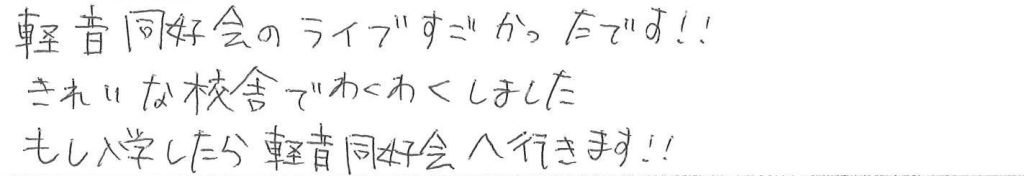 軽音同好会のライブすごかったです!!
きれいな校舎でわくわくしました
もし入学したら軽音同好会へ行きます!!